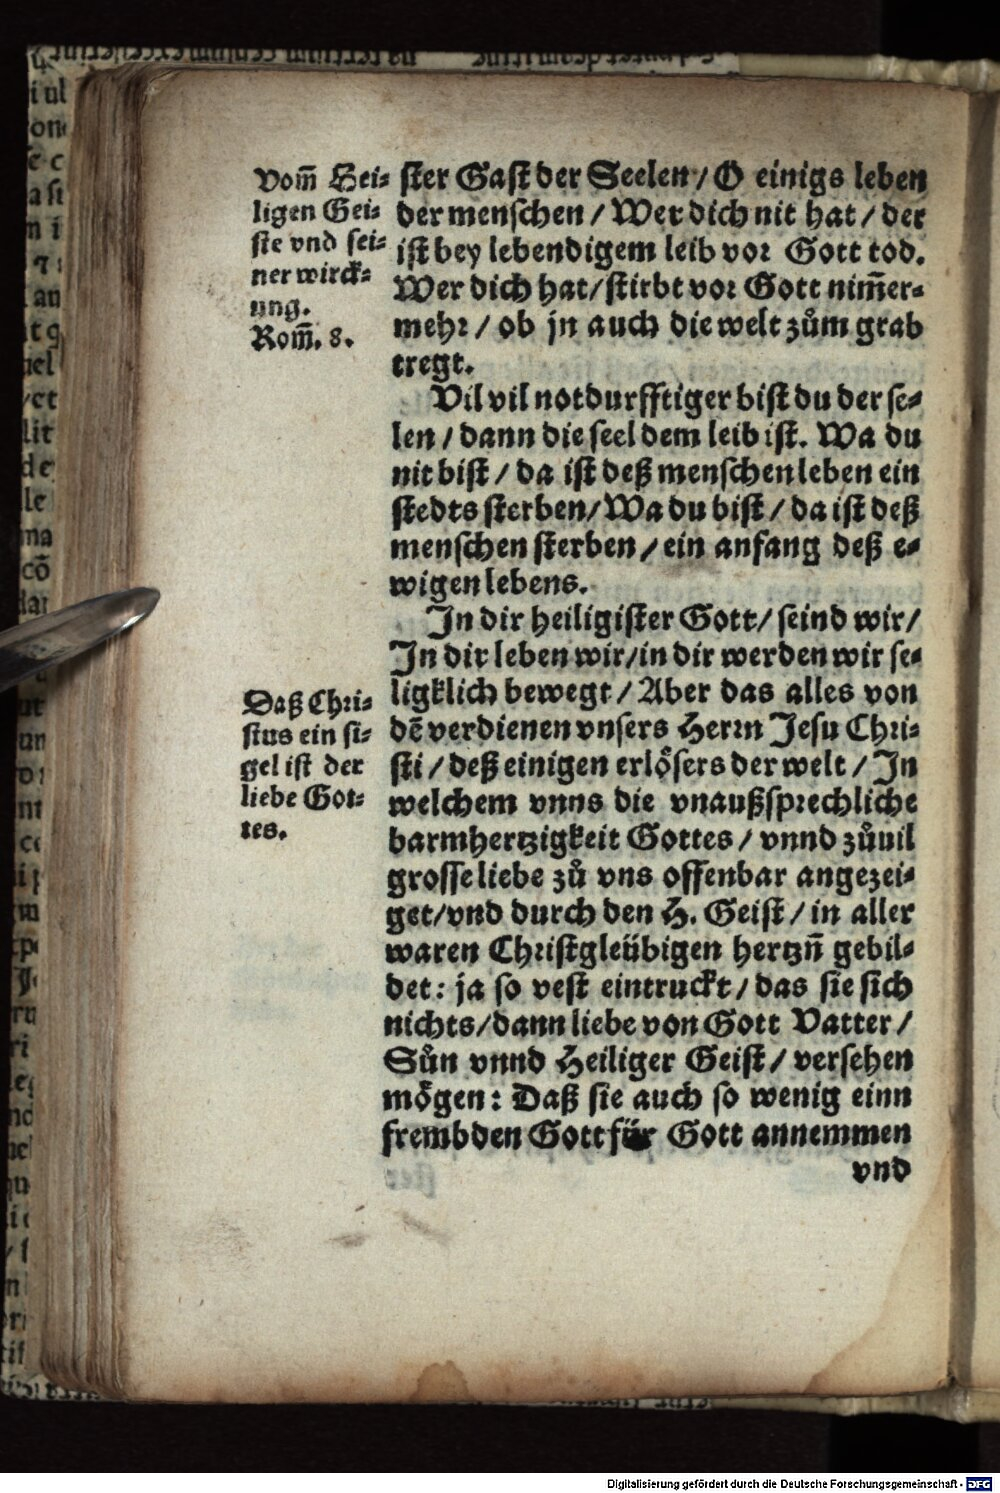 Vom̃ Hei-
ligen Gei-
ste vnd sei-
ner wirck-
ung.
Rom̃. 8.
ster Gast der Seelen / O einigs leben
der menschen / Wer dich nit hat / der
ist bey lebendigem leib vor Gott tod.
Wer dich hat / stirbt vor Gott nim̃er-
mehr / ob jn auch die welt zům grab
tregt.
Vil vil notdurfftiger bist du der se-
len / dann die seel dem leib ist. Wa du
nit bist / da ist deß menschen leben ein
stedts sterben / Wa du bist / da ist deß
menschen sterben / ein anfang deß e-
wigen lebens.
In dir heiligister Gott / seind wir /
In dir leben wir / in dir werden wir se-
ligklich bewegt / Aber das alles von
dẽ verdienen vnsers Herrn Jesu Chri-
sti / deß einigen erlösers der welt / In
welchem vnns die vnaußsprechliche
barmhertzigkeit Gottes / vnnd zůuil
grosse liebe zů vns offenbar angezei-
get / vnd durch den H. Geist / in aller
waren Christgleübigen hertzñ gebil-
det: ja so vest eintruckt / das sie sich
nichts / dann liebe von Gott Vatter /
Sůn vnnd Heiliger Geist / versehen
mögen: Daß sie auch so wenig einn
frembden Gott für Gott annemmen
vnd
Daß Chri-
stus ein si-
gel ist der
liebe Got-
tes.
Digitalisierung gefördert durch die Deutsche Forschungsgemeinschaft - DFG